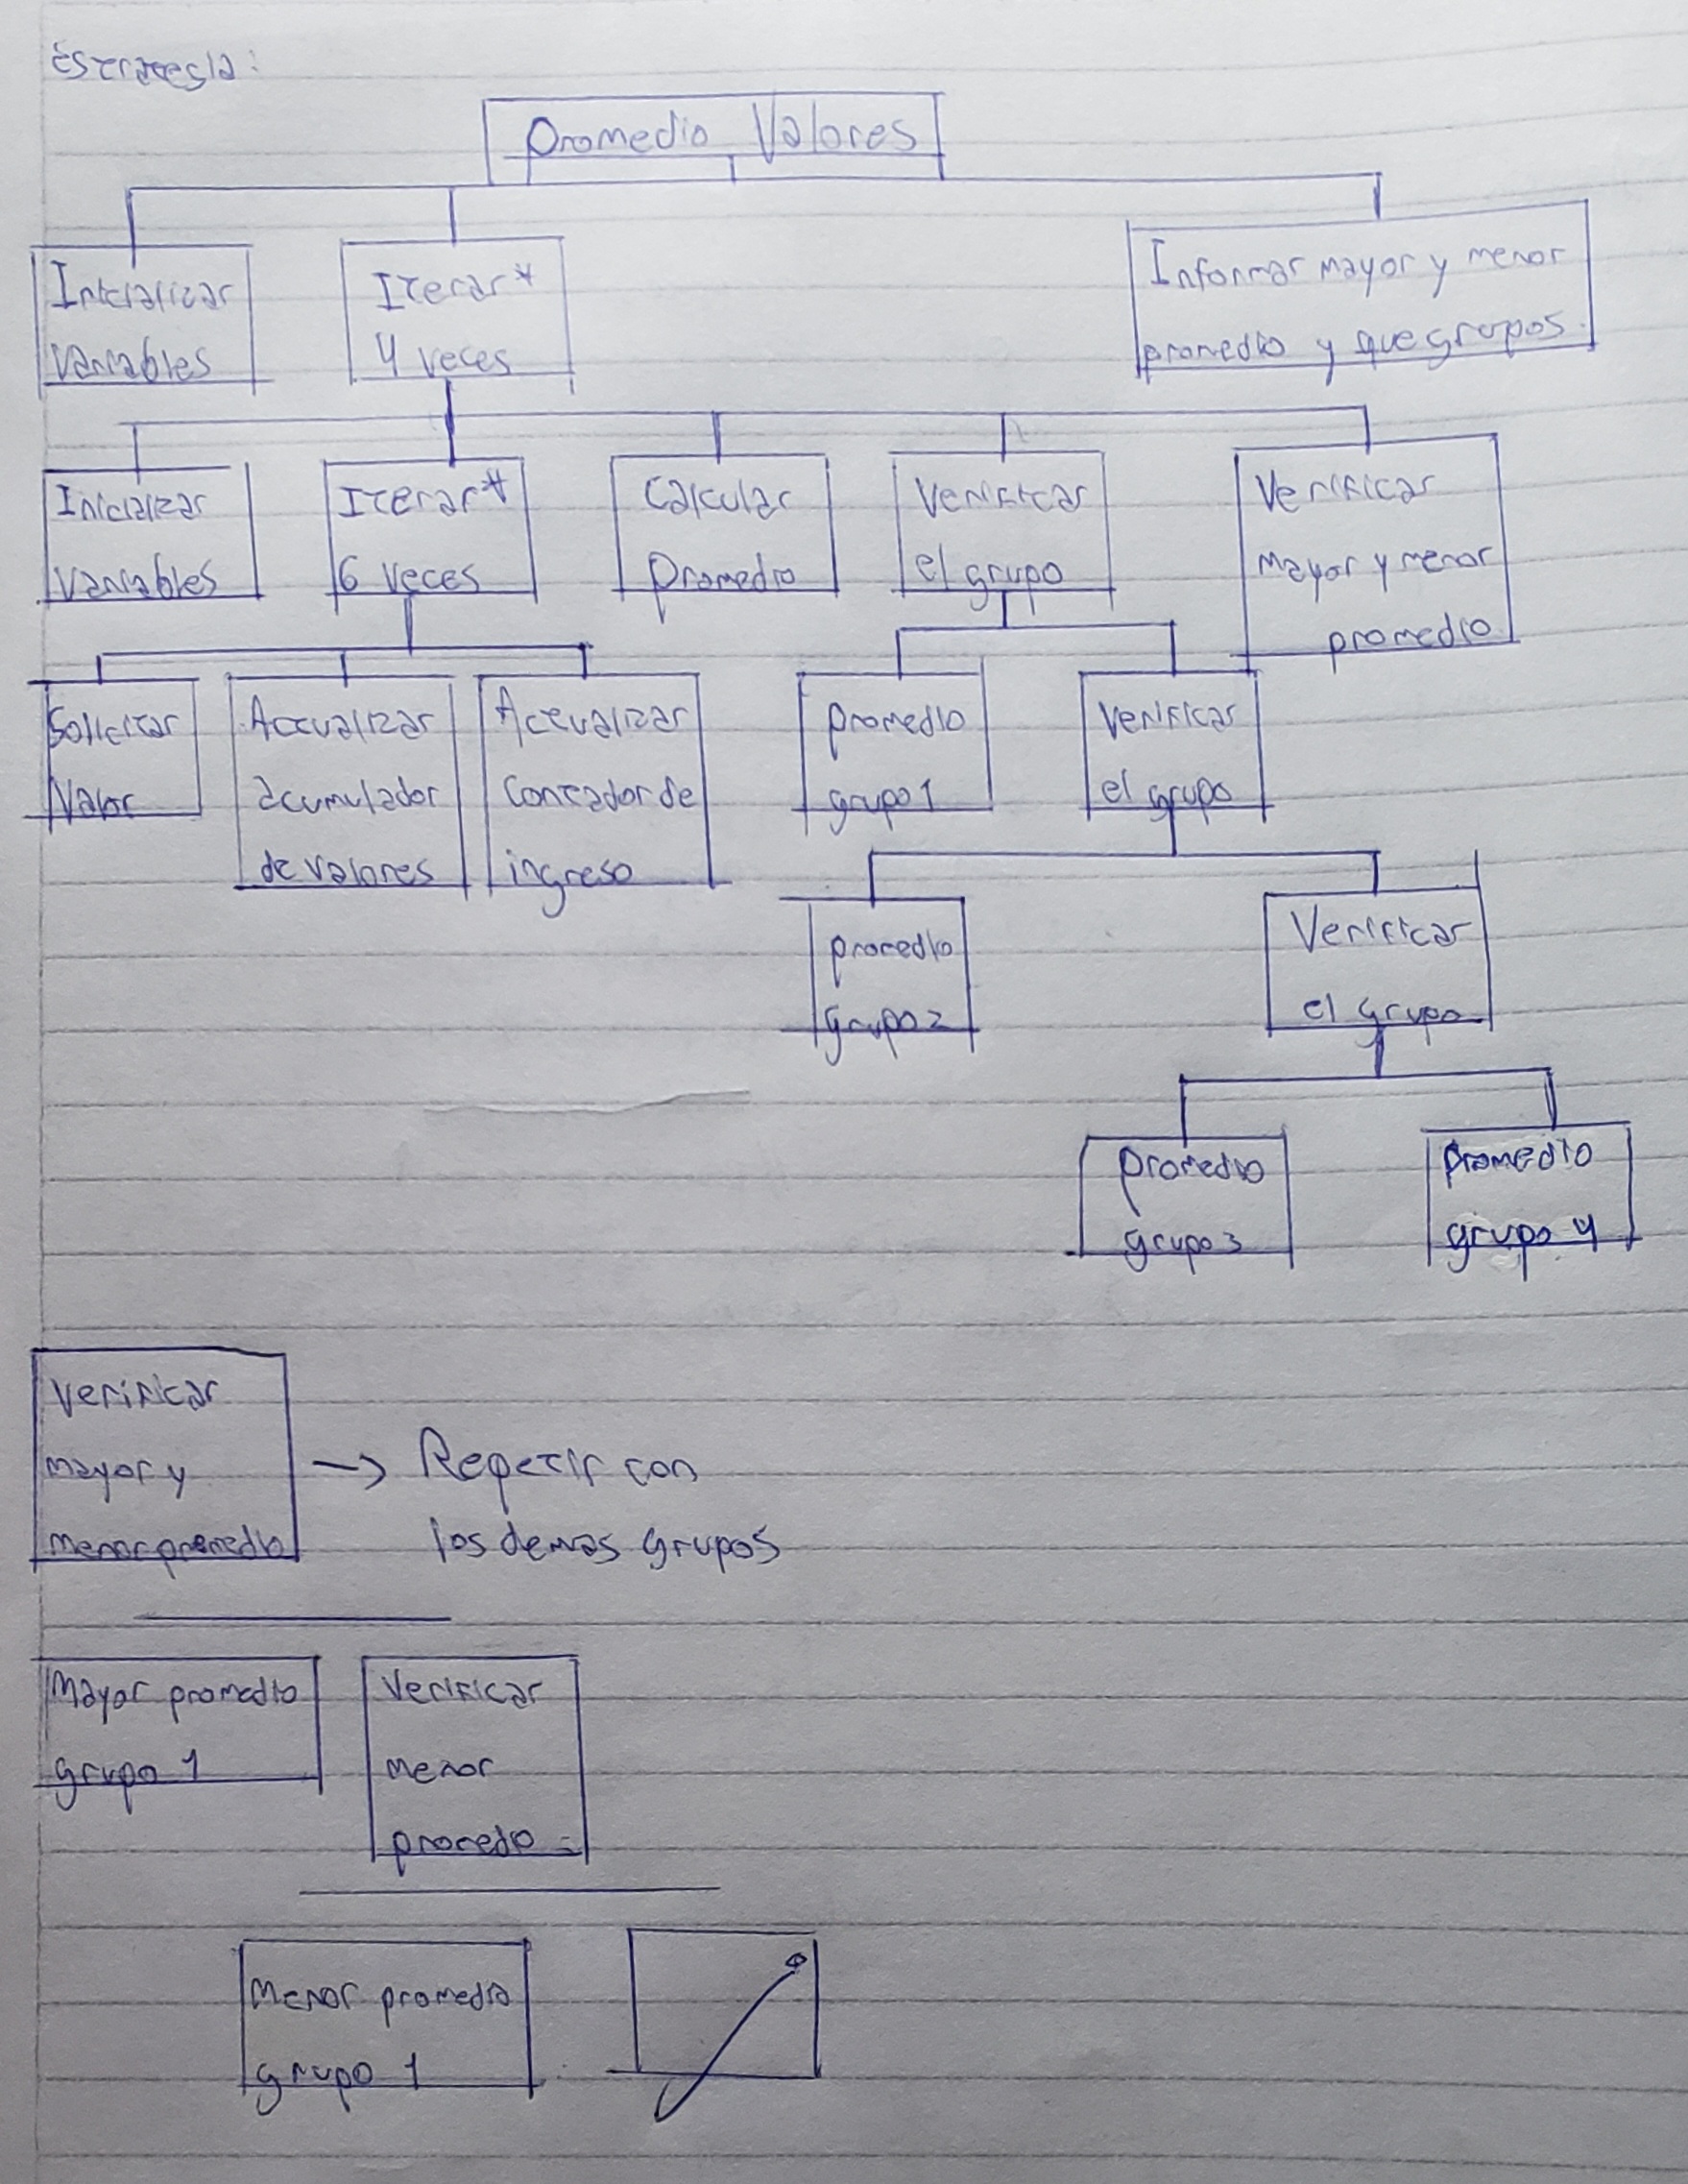 Estrategia:
Promedio Valores
Inicializar
Variables
Iterar*
4 veces
Informar mayor y menor
promedio y que grupos.
Inicializar
Variables
Iterar*
6 veces
Calcular
Promedio
Verificar
el grupo
Verificar
mayor y menor
promedio
Solicitar
Valor
Actualizar
acumulador
de valores
Actualizar
Contador de
ingreso
promedio
grupo 1
Verificar
el grupo
promedio
grupo 2
Verificar
el grupo
Promedio
grupo 3
Promedio
grupo 4
Verificar
mayor y
menor promedio
→ Repetir con
los demas grupos
Mayor promedio
grupo 1
Verificar
menor
promedio
Menor promedio
grupo 1